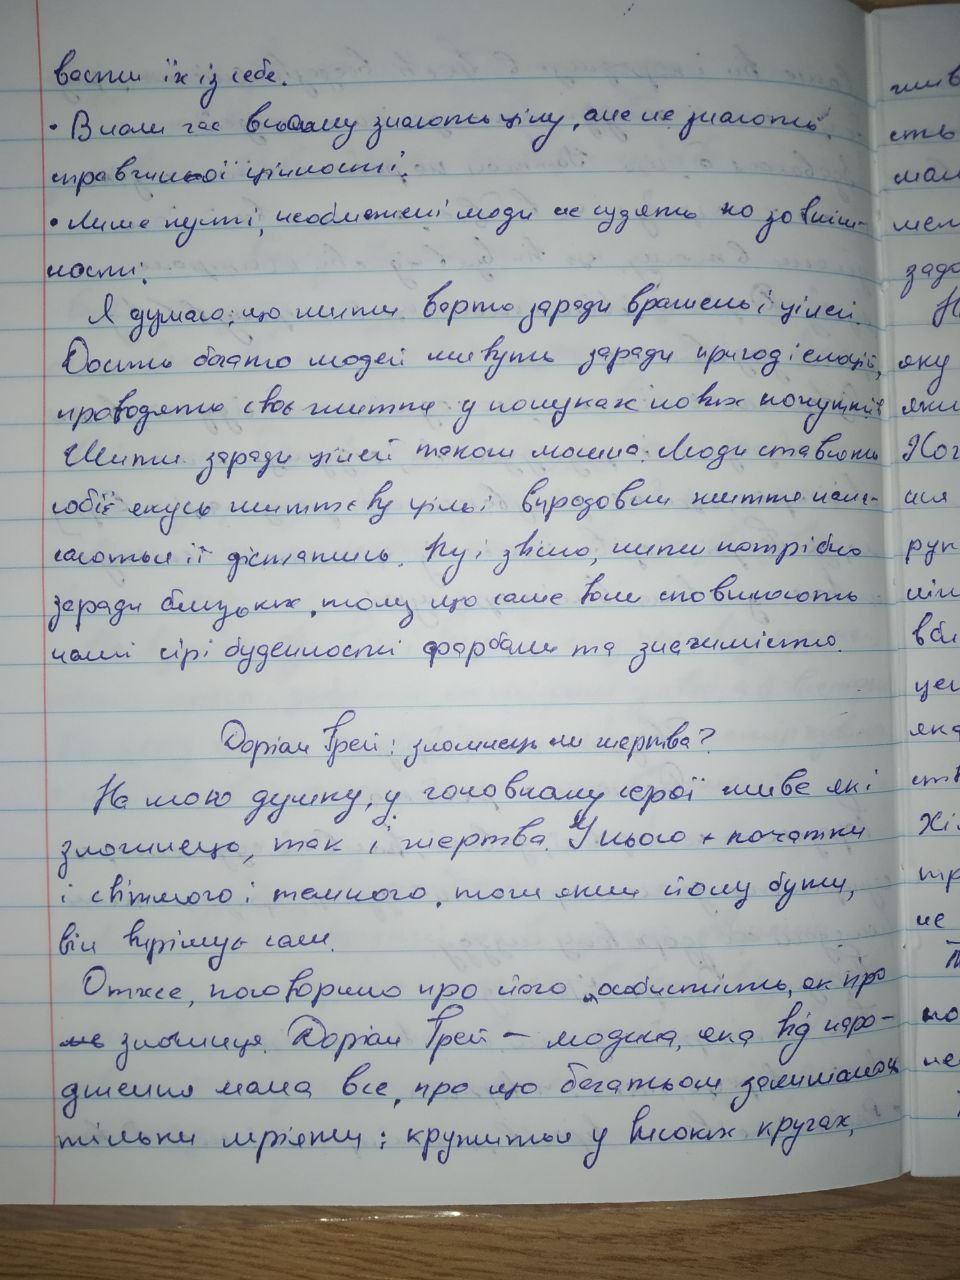 вости їх із себе.
• В наш час всьому знають ціну, але не знають
справжньої цінності.
• Лише пусті, необмежені люди не судять по зовніш-
ності.
Я думаю, що жити варто заради вражень і цілей.
Досить багато людей живуть заради пригод і емоцій,
проводять своє життя у пошуках нових почуттів
Жити заради цілей також можна. Люди ставлять
собі якусь життєву ціль і впродовж життя нама-
гаються її дістатись. Ну і звісно, жити потрібно
заради близьких, тому що саме вони сповнюють
наші сірі буденності фарбами та значимістю.
Доріан Грей: злочинець чи жертва?
На мою думку, у головному герої живе як і
злочинець, так і жертва. У нього є початки
і світлого і темного, тож яким йому бути,
він вирішує сам.
Отже, поговоримо про його особистість, як про
злочинця. Доріан Грей – людина, яка від наро-
дження мала все, про що багатьом залишалось
тільки мріяти: крутиться у високих кругах,
жив
сть
мал
жел
зада
На
яку
яки
Ког
ися
рук
віт
вби
цен
яка
ств
Хіл
тр
не
по
не